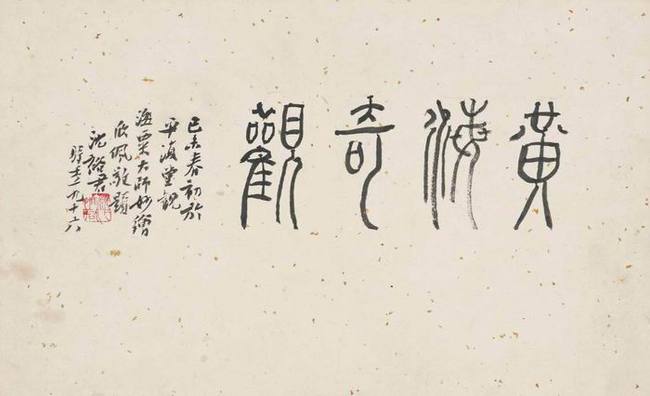 黄海奇觀
己未春初於
平復堂觀
海粟大師妙繪
欣佩敬題
沈裕君
時年九十八